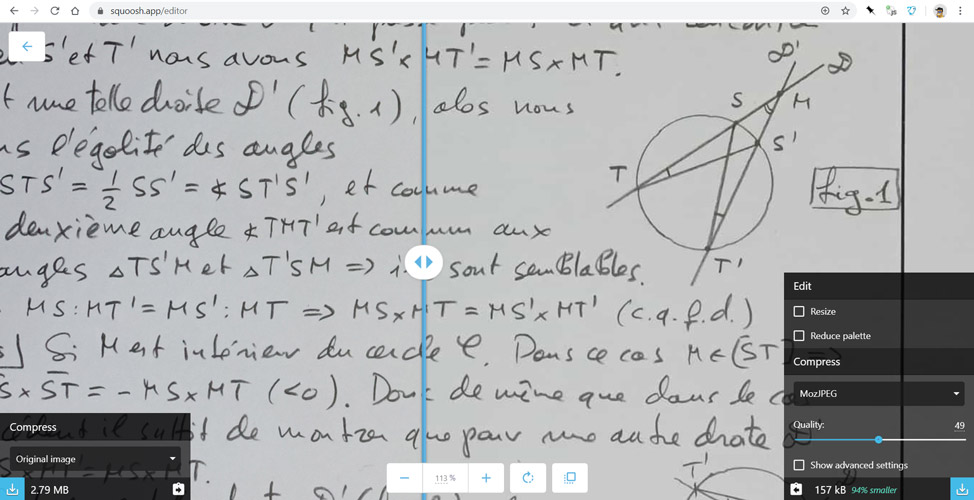 squoosh.app/editor
S' et T' nous avons MS'×MT' = MS×MT.
une telle droite D' (fig. 1), alos nous
l'égalité des angles
STS' = 1/2 SS' = ∢ ST'S', et comme
deuxième angle ∢ TMT' est commun aux
angles △TS'M et △T'SM => sont semblables.
MS:MT' = MS':MT => MS×MT = MS'×MT' (c.q.f.d.)
Si M est intérieur du cercle C. Dans ce cas M∈(ST) =>
×ST = -MS×MT (<0). Donc de même que dans le
il suffit de montrer que pour une autre droite D'
D' D
S M
S'
T
T'
fig. 1
T'
Edit
Resize
Reduce palette
Compress
MozJPEG
Quality: 49
Show advanced settings
157 kB 94% smaller
Compress
Original image
2.79 MB
113 %